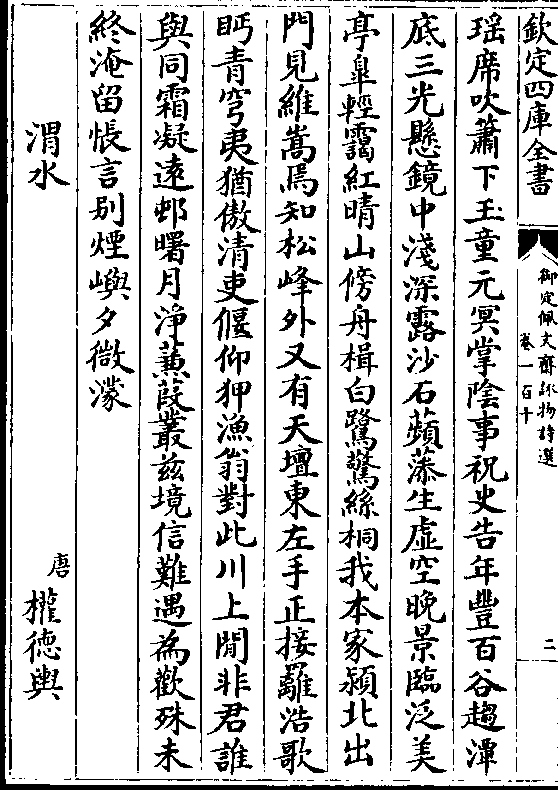 欽定四庫全書
御定佩文齋詠物詩選
卷一百十
三
瑶席吹簫下玉童元冥掌陰事祝史告年豐百谷趨潭
底三光懸鏡中淺深露沙石蘋藻生虛空晚景臨泛美
亭臯輕靄紅晴山傍舟楫白鷺驚絲桐我本家潁北出
門見維嵩焉知松峰外又有天壇東左手正接䍦浩歌
眄青穹夷猶傲清吏偃仰狎漁翁對此川上閒非君誰
與同霜凝遠邨曙月淨蒹葭叢兹境信難遇為歡殊未
終淹留悵言别煙嶼夕微濛
渭水
唐
權德輿